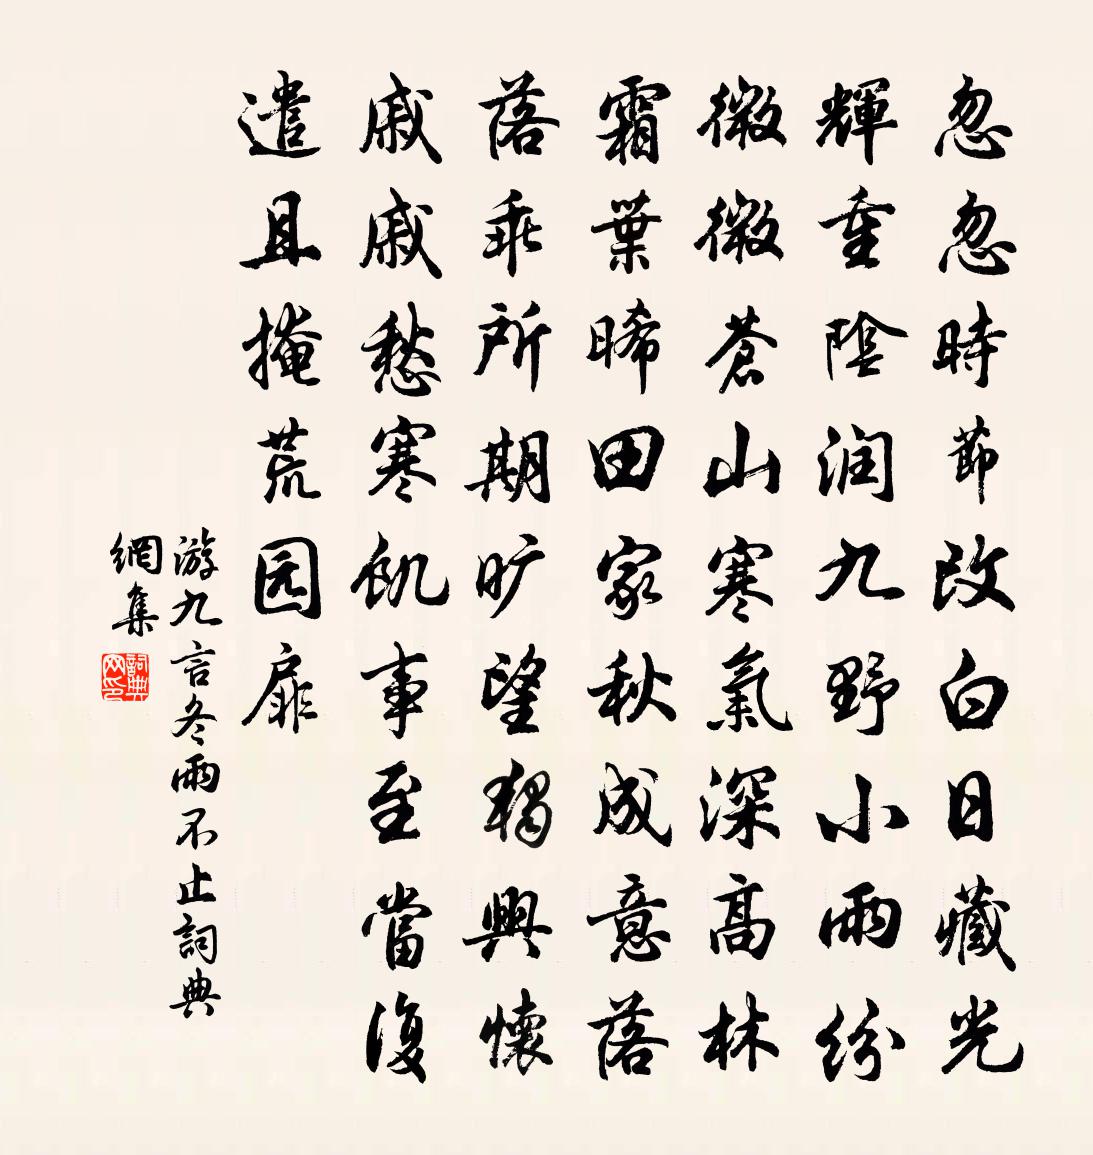 忽忽時節改白日藏光
輝重陰润九野小雨紛
微微蒼山寒氣深高林
霜葉晞田家秋成意落
落乖所期旷望獨興懷
戚戚愁寒飢事至當復
遣且掩荒园扉
游九言冬雨不止詞典
網集
詞典
网印